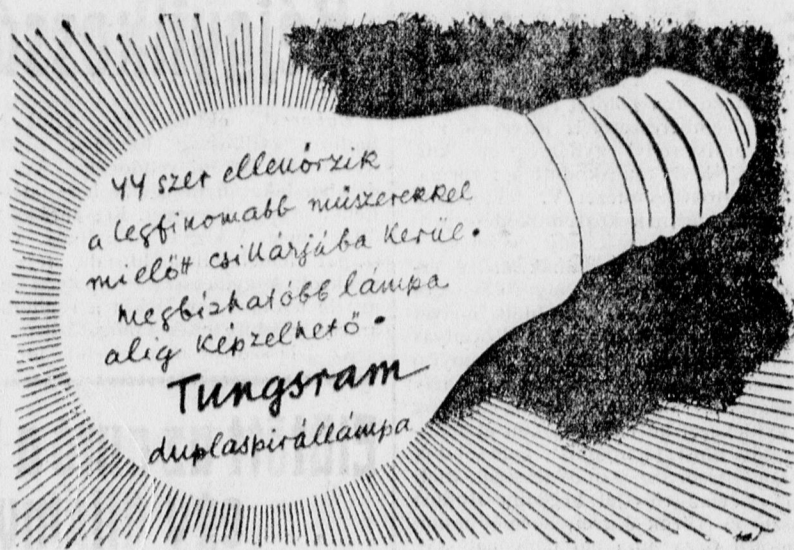 44 szer ellenőrzik
a legfinomabb műszerekkel
mielőtt csillárjába kerül.
megbizhatóbb lámpa
alig képzelhető.
Tungsram
duplaspirállámpa